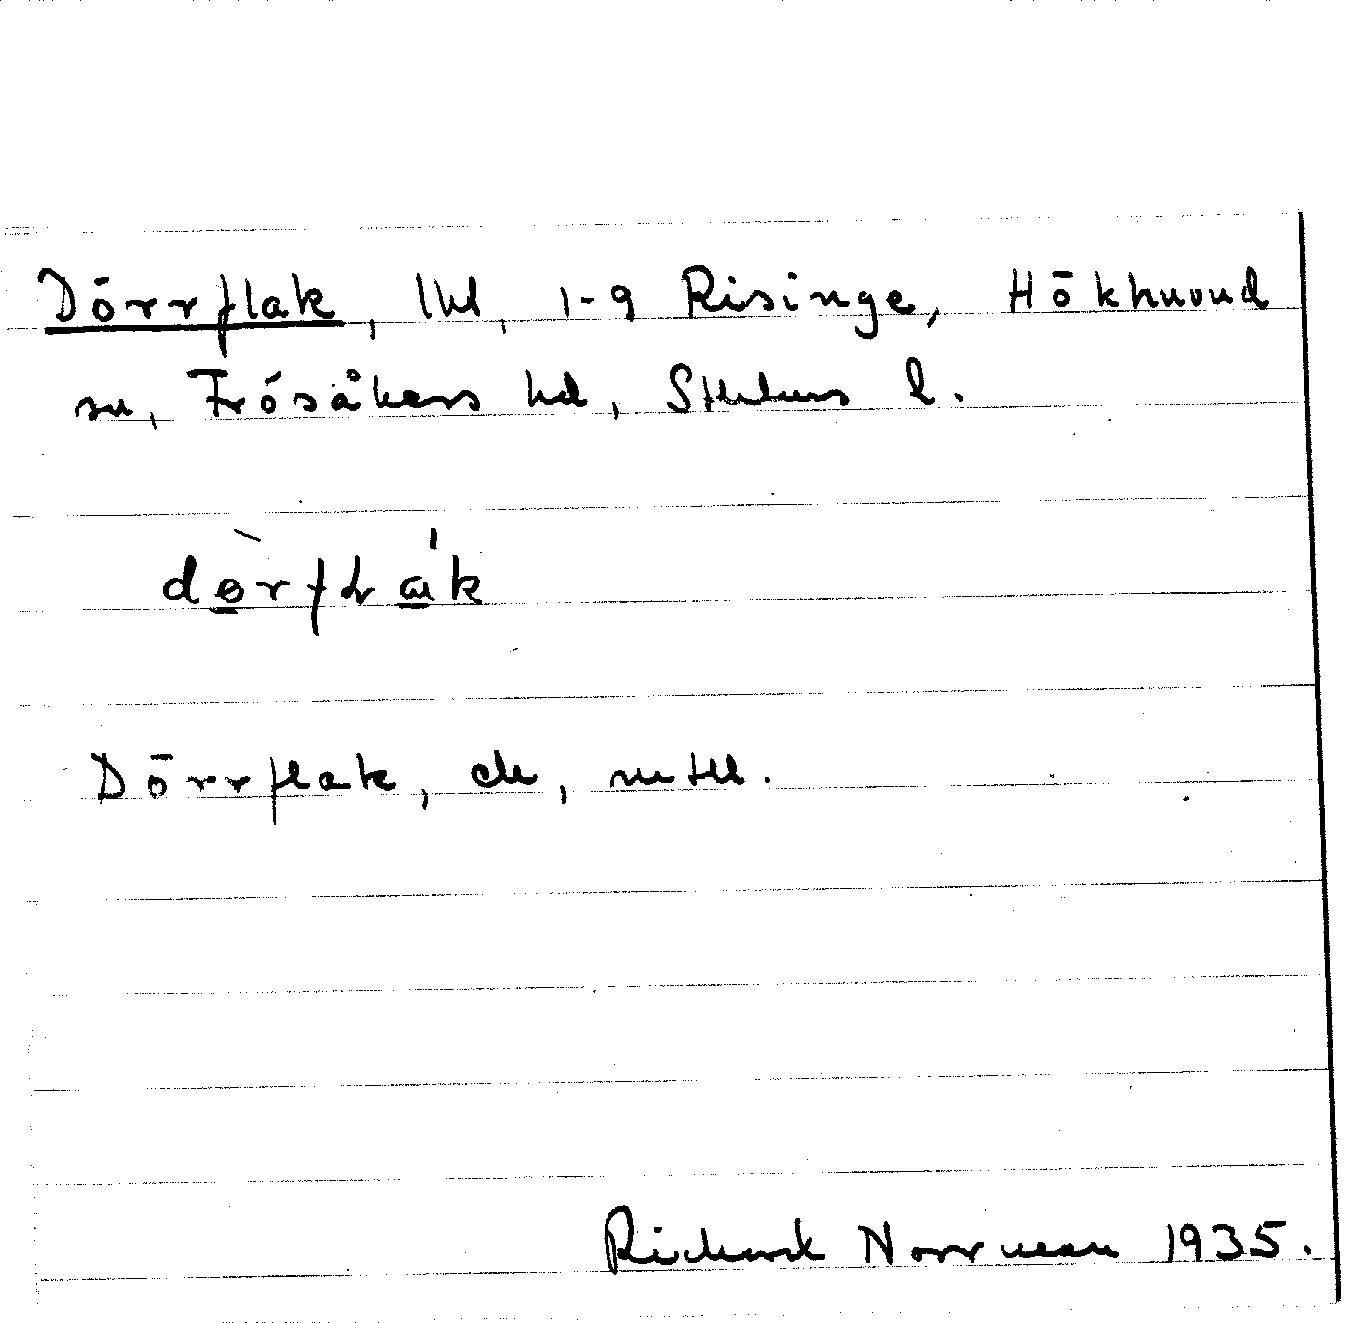 Dörrflak, lht, 1-9 Risinge, Hökhuvud
sn, Frösåkers hd, Sthlms l.
dørfLak
Dörrflak, de, metll.
Richard Norrman 1935.